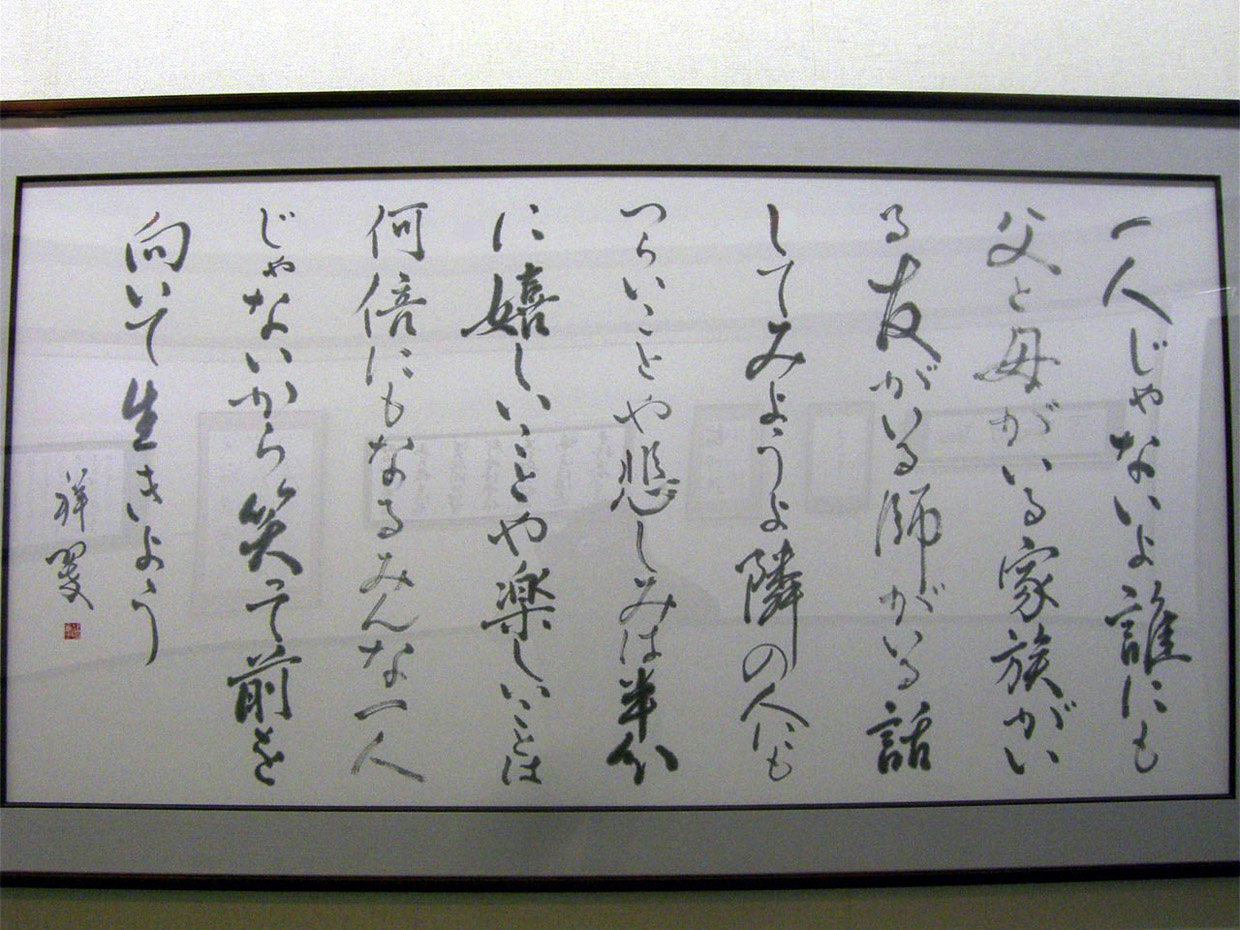 一人じゃないよ誰にも
父と母がいる家族がい
る友がいる師がいる話
してみようよ隣の人にも
つらいことや悲しみは半分
に嬉しいことや楽しいことは
何倍にもなるみんな一人
じゃないから笑って前を
向いて生きよう
祥翠